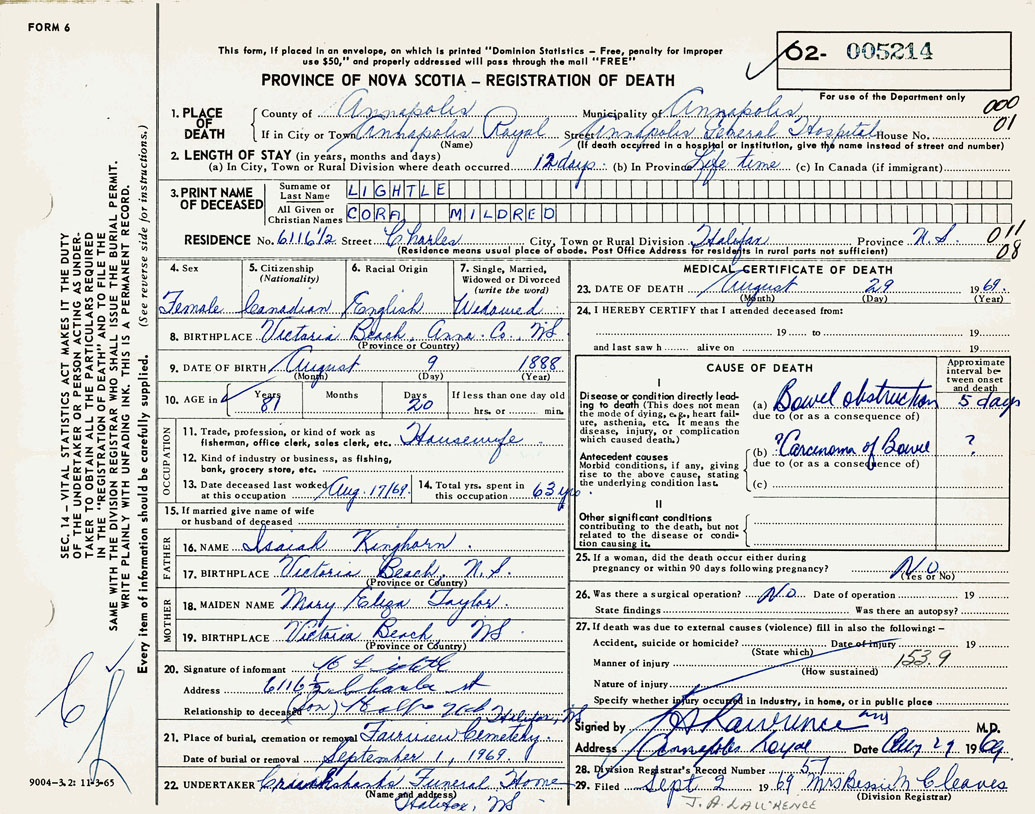 FORM 6
This form, if placed in an envelope, on which is printed "Dominion Statistics – Free, penalty for improper
use $50," and properly addressed will pass through the mail "FREE"
02- 005214
For use of the Department only
PROVINCE OF NOVA SCOTIA – REGISTRATION OF DEATH
000
01
1. PLACE OF DEATH
County of Annapolis Municipality of Annapolis
If in City or Town Annapolis Royal Street Annapolis General Hospital House No.
(Name) (If death occurred in a hospital or institution, give the name instead of street and number)
2. LENGTH OF STAY (in years, months and days)
(a) In City, Town or Rural Division where death occurred 12 days (b) In Province Life time (c) In Canada (if immigrant)
3. PRINT NAME OF DECEASED
Surname or Last Name LIGHTLE
All Given or Christian Names CORA MILDRED
RESIDENCE No. 6116 1/2 Street Charles City, Town or Rural Division Halifax Province N.S.
(Residence means usual place of abode. Post Office Address for residents in rural parts not sufficient)
011
08
4. Sex
Female
5. Citizenship (Nationality)
Canadian
6. Racial Origin
English
7. Single, Married, Widowed or Divorced (write the word)
Widowed
8. BIRTHPLACE Victoria Beach, Anna. Co., NS
(Province or Country)
9. DATE OF BIRTH August 9 1888
(Month) (Day) (Year)
10. AGE in Years Months Days If less than one day old
81 20 hrs. or min.
OCCUPATION
11. Trade, profession, or kind of work as
fisherman, office clerk, sales clerk, etc. Housewife
12. Kind of industry or business, as fishing,
bank, grocery store, etc.
13. Date deceased last worked
at this occupation Aug. 17/69.
14. Total yrs. spent in
this occupation 63 yrs.
15. If married give name of wife
or husband of deceased
FATHER
16. NAME Isaiah Kinghorn
17. BIRTHPLACE Victoria Beach, N.S.
(Province or Country)
MOTHER
18. MAIDEN NAME Mary Eliza Taylor
19. BIRTHPLACE Victoria Beach, NS
(Province or Country)
20. Signature of informant
Address 6116 1/2 Charles st
Relationship to deceased (Son) Halifax, NS
21. Place of burial, cremation or removal Fairview Cemetery.
Date of burial or removal September 1, 1969.
22. UNDERTAKER Cruikshanks Funeral Home
(Name and address)
Halifax, NS
MEDICAL CERTIFICATE OF DEATH
23. DATE OF DEATH August 29 1969.
(Month) (Day) (Year)
24. I HEREBY CERTIFY that I attended deceased from:
19 to 19
and last saw h alive on 19
CAUSE OF DEATH
Approximate interval between onset and death
I
Disease or condition directly leading
to death (This does not
mean the mode of dying, e.g., heart failure,
asthenia, etc. It means the
disease, injury, or complication
which caused death.)
(a) Bowel obstruction 5 days
due to (or as a consequence of)
Antecedent causes
Morbid conditions, if any, giving
rise to the above cause, stating
the underlying condition last.
(b) ?Carcinoma of Bowel ?
due to (or as a consequence of)
(c)
II
Other significant conditions
contributing to the death, but not
related to the disease or condition
causing it.
25. If a woman, did the death occur either during
pregnancy or within 90 days following pregnancy? No
(Yes or No)
26. Was there a surgical operation? No Date of operation 19
State findings Was there an autopsy?
27. If death was due to external causes (violence) fill in also the following: –
Accident, suicide or homicide? Date of injury 19
(State which)
Manner of injury 153.9
(How sustained)
Nature of injury
Specify whether injury occurred in Industry, in home, or in public place
Signed by Lawrence M.D.
Address Annapolis Royal Date Aug 29 1969
28. Division Registrar's Record Number 57
29. Filed Sept 2 1969 Mrs Bessie M Cleaves
(Division Registrar)
J. A. LAWRENCE
SEC. 14 – VITAL STATISTICS ACT MAKES IT THE DUTY
OF THE UNDERTAKER OR PERSON ACTING AS UNDER-
TAKER TO OBTAIN ALL THE PARTICULARS REQUIRED
IN THE "REGISTRATION OF DEATH" AND TO FILE THE
SAME WITH THE DIVISION REGISTRAR WHO SHALL ISSUE THE BURIAL PERMIT.
WRITE PLAINLY WITH UNFADING INK. THIS IS A PERMANENT RECORD.
Every item of information should be carefully supplied. (See reverse side for instructions.)
9004-3.2: 11-3-65